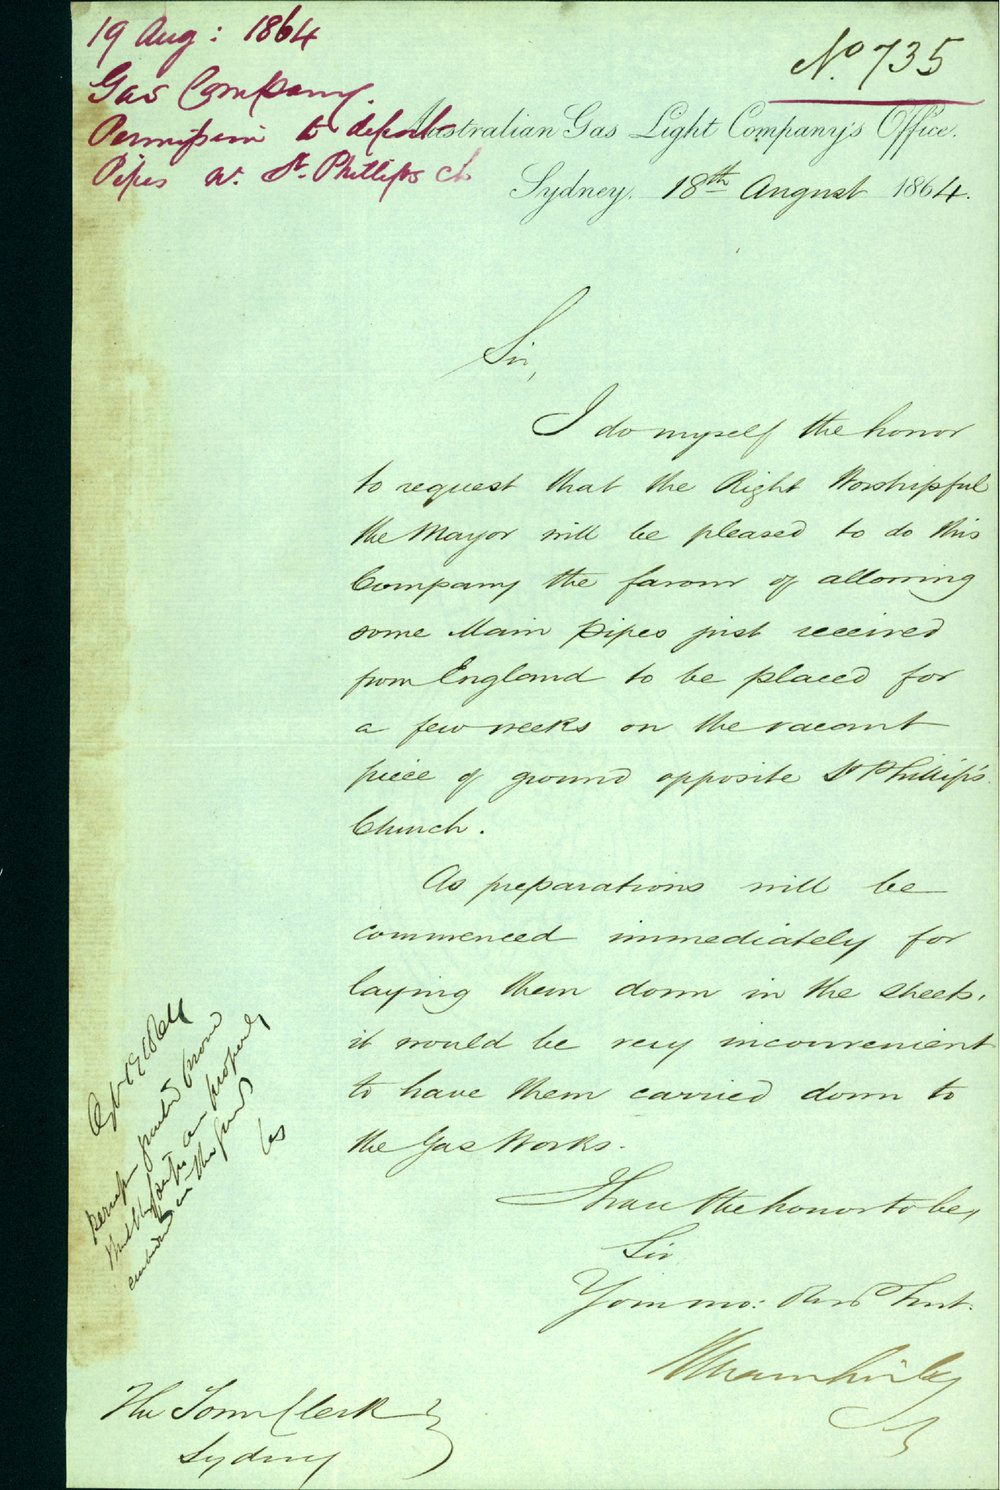 19 Aug: 1864
Gas Company.
Permission to deposit
Pipes nr. St. Phillips Ch
No. 735
Australian Gas Light Company's Office.
Sydney, 18th August 1864.
Sir,
I do myself the honor
to request that the Right Worshipful
the Mayor will be pleased to do this
Company the favour of allowing
some Main pipes just received
from England to be placed for
a few weeks on the vacant
piece of ground opposite St Phillip's
Church.
As preparations will be
commenced immediately for
laying them down in the streets,
it would be very inconvenient
to have them carried down to
the Gas Works.
I have the honor to be,
Sir
Your mo: Obed Servt.
The Town Clerk
Sydney